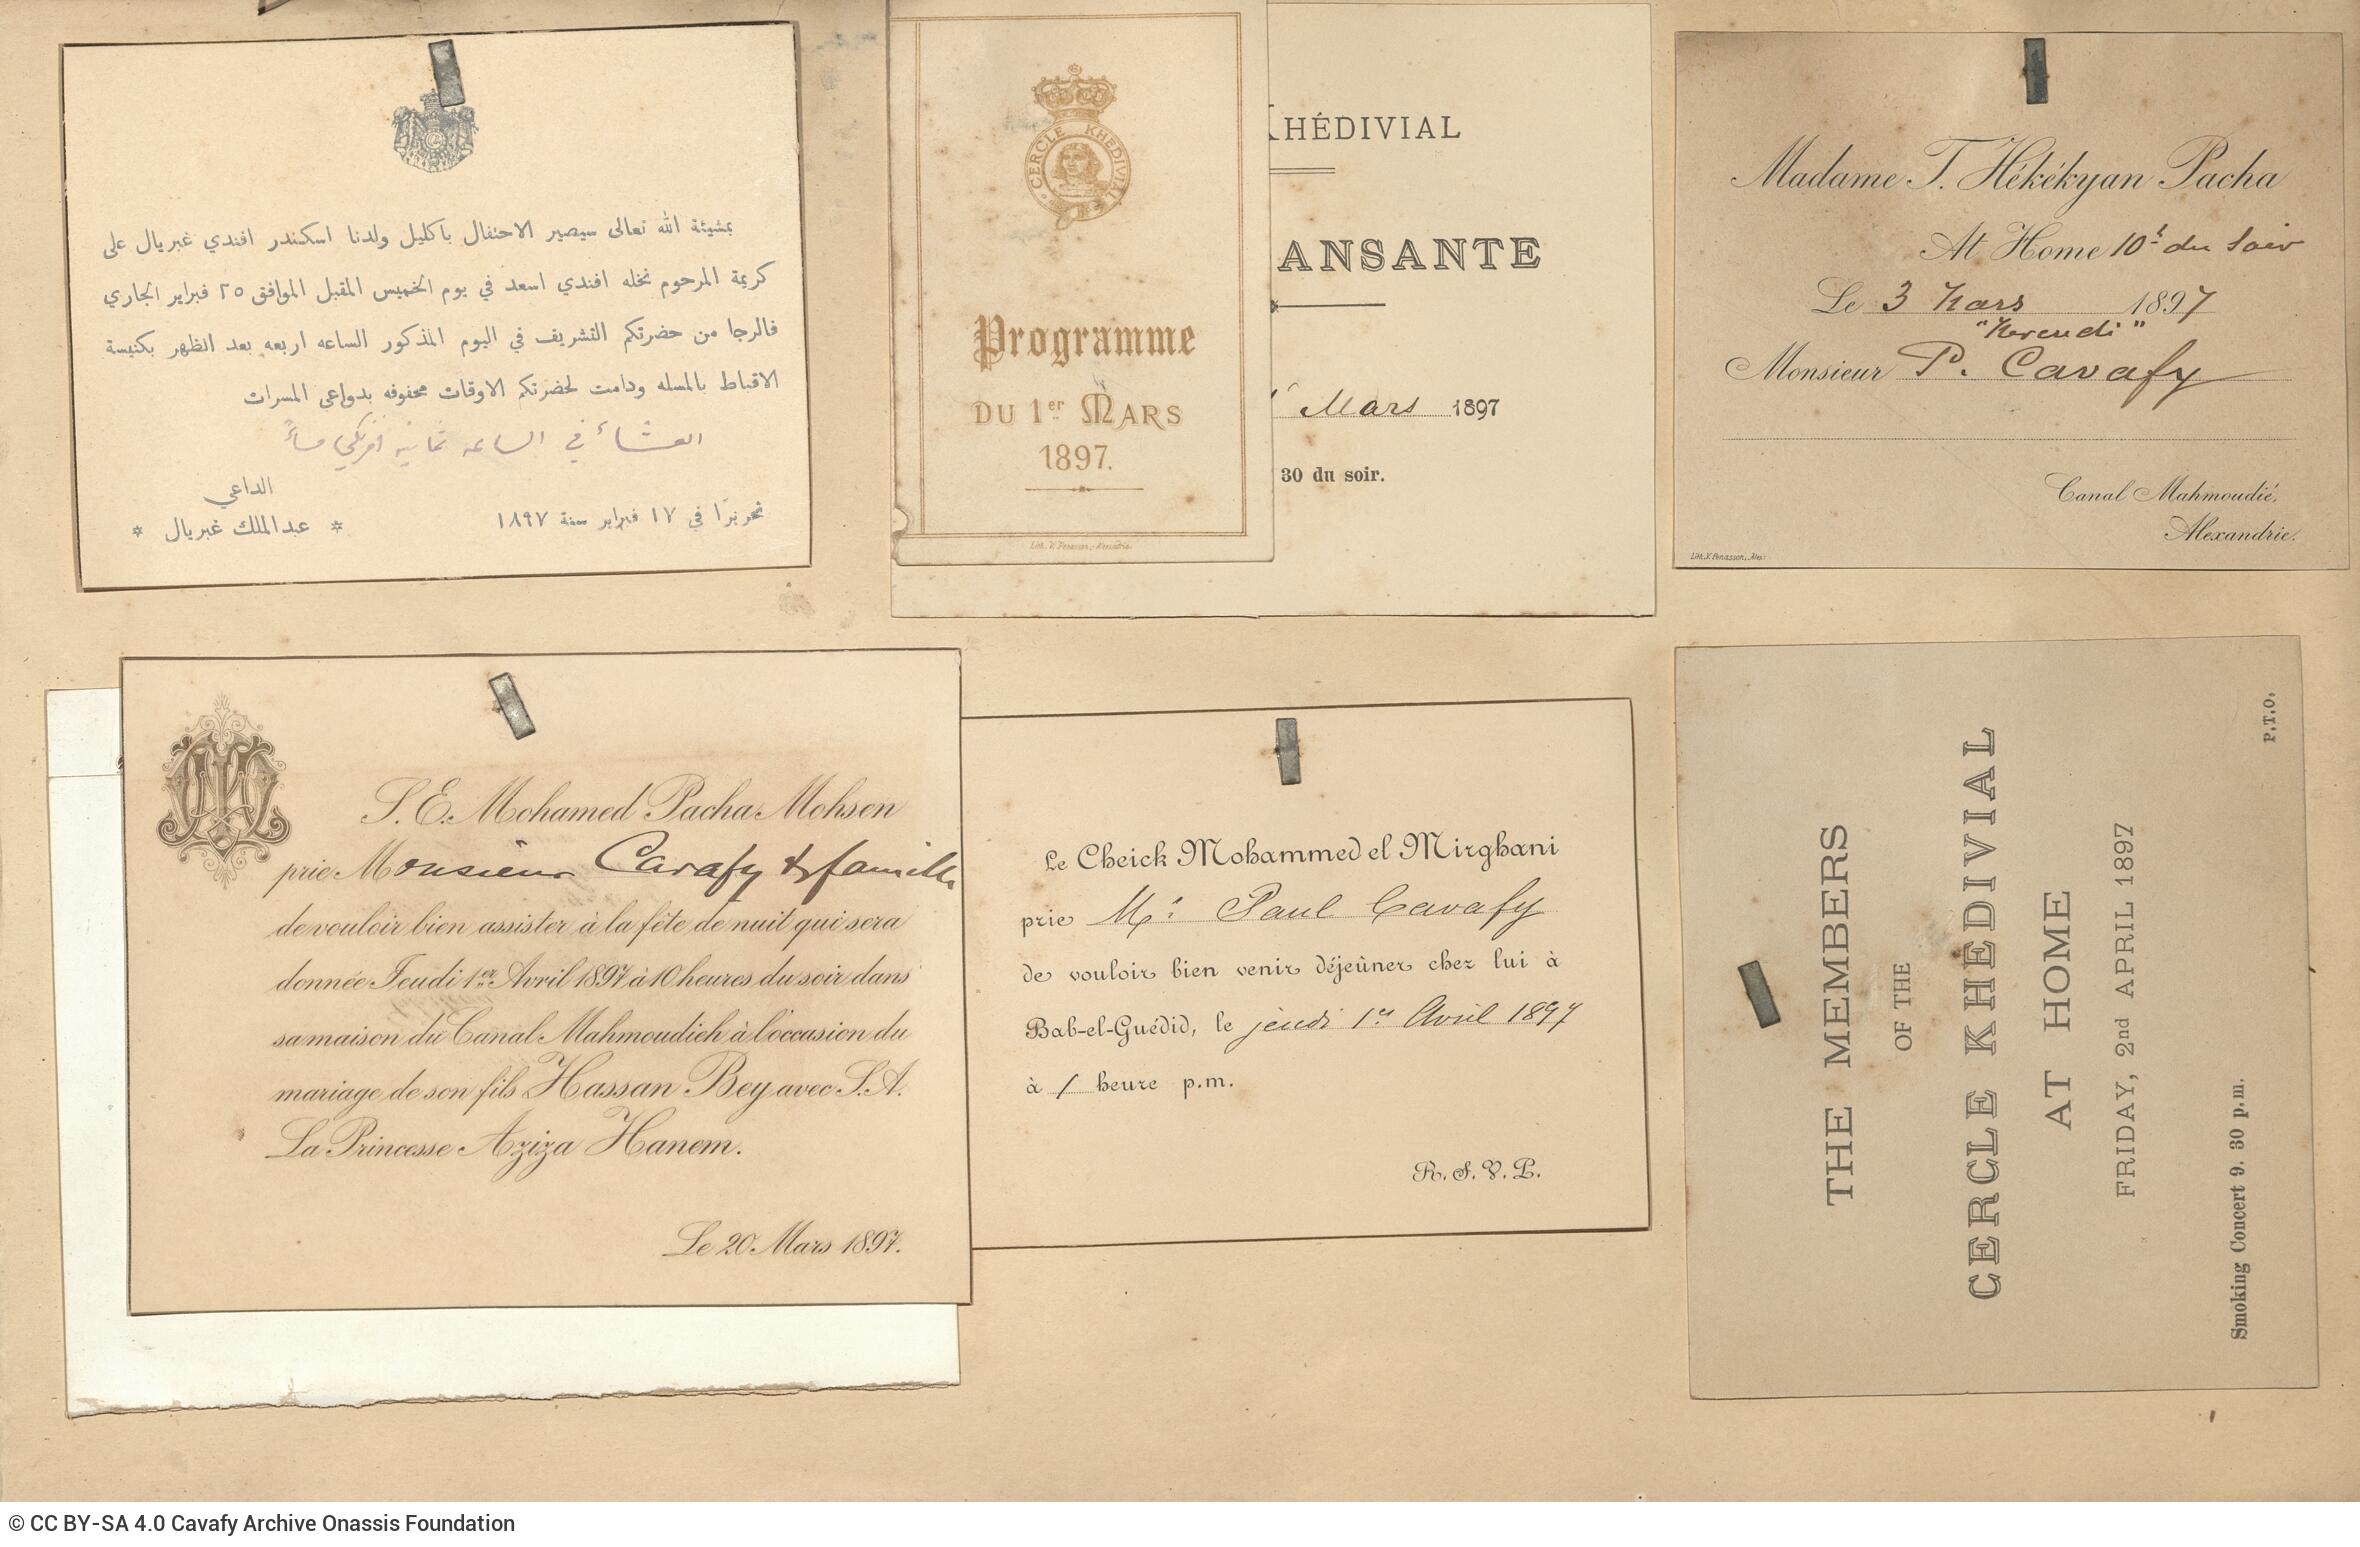 بمشيئة الله تعالى سيصير الاحتفال باكليل ولدنا اسكندر افندي غبريال على
كريمة المرحوم نخله افندي اسعد في يوم الخميس المقبل الموافق ٢٥ فبراير الجاري
فالرجا من حضرتكم التشريف في اليوم المذكور الساعه اربعه بعد الظهر بكنيسة
الاقباط بالمسله ودامت لحضرتكم الاوقات محفوفه بدواعي المسرات
العشاء في الساعه ثمانيه افرنكي مساءً
الداعي
* عبدالملك غبريال *
تحريرًا في ١٧ فبراير سنة ١٨٩٧
CERCLE KHEDIVIAL
Programme
DU 1er MARS
1897.
Lith. V. Penasson, Alexandrie.
KHÉDIVIAL
ANSANTE
Mars 1897
30 du soir.
Madame T. Hékékyan Pacha
At Home 10h du soir
Le 3 Mars 1897
Monsieur P. Cavafy
Canal Mahmoudié,
Alexandrie.
Lith. V. Penasson, Alex.
S. E. Mohamed Pacha Mohsen
prie Monsieur Cavafy & famille
de vouloir bien assister à la fête de nuit qui sera
donnée Jeudi 1er Avril 1897 à 10 heures du soir dans
sa maison du Canal Mahmoudieh à l'occasion du
mariage de son fils Hassan Bey avec S. A.
La Princesse Aziza Hanem.
Le 20 Mars 1897.
Le Cheick Mohammed el Mirghani
prie Mr Paul Cavafy
de vouloir bien venir déjeûner chez lui à
Bab-el-Guédid, le jeudi 1er Avril 1897
à 1 heure p.m.
R. S. V. P.
THE MEMBERS
OF THE
CERCLE KHEDIVIAL
AT HOME
FRIDAY, 2nd APRIL 1897
Smoking Concert 9. 30 p.m.
P.T.O.
© CC BY-SA 4.0 Cavafy Archive Onassis Foundation